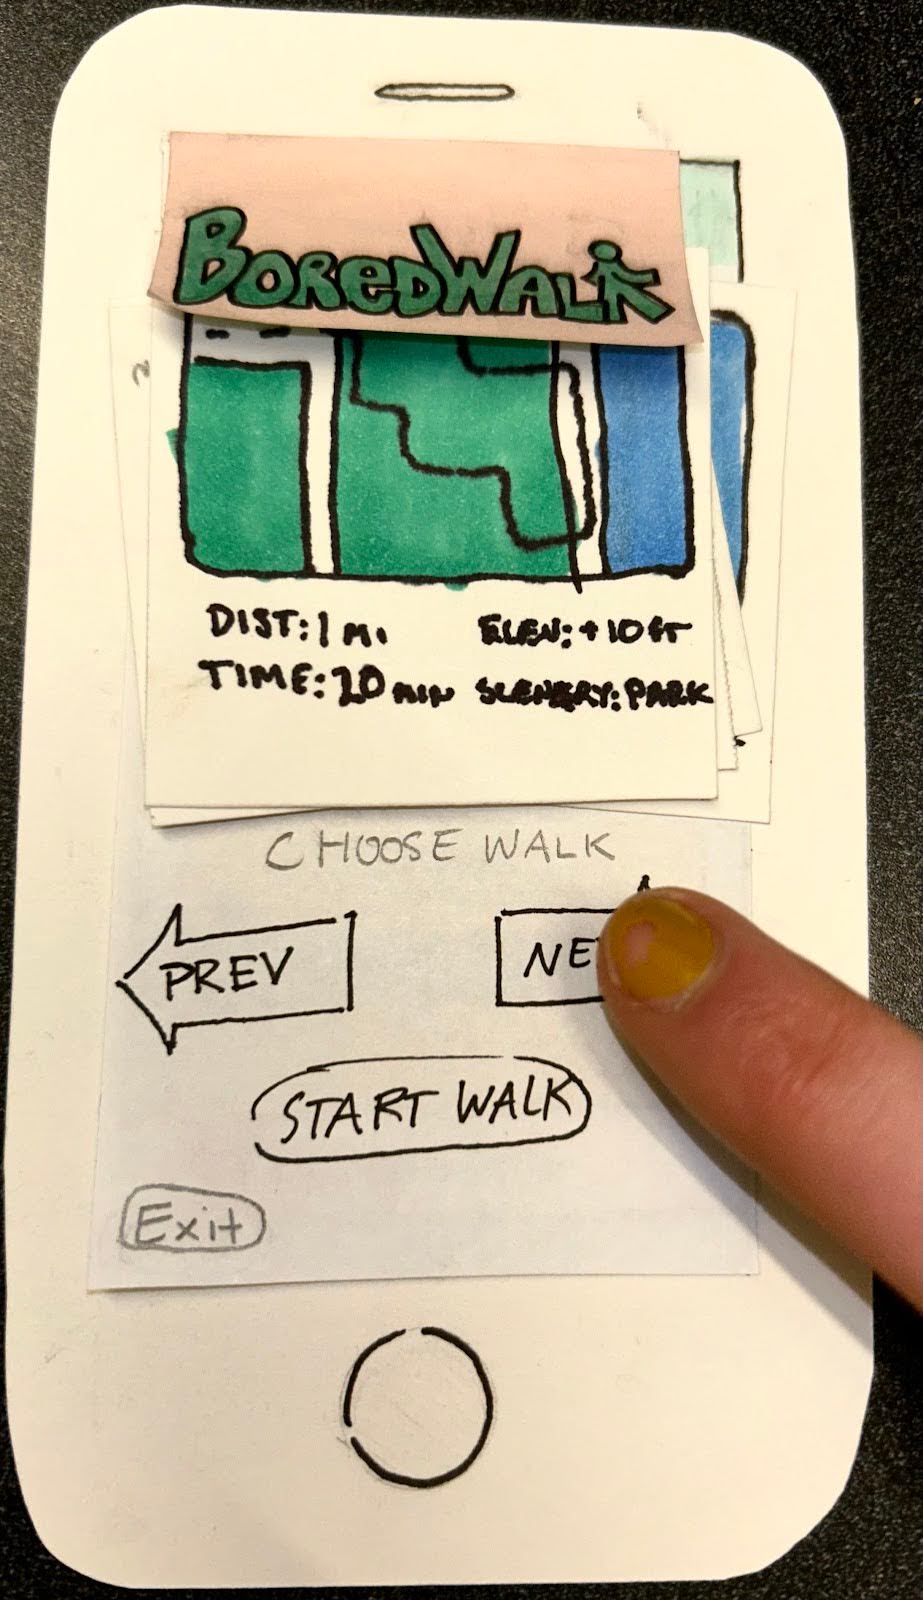 BoredWalk
DIST: 1 mi. ELEV: +10 ft
TIME: 20 min SCENERY: PARK
CHOOSE WALK
PREV
START WALK
Exit